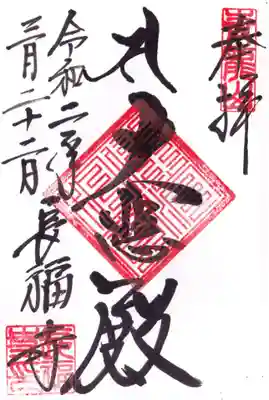 奉拝
大悲殿
令和二年
三月二十二日
長福寺